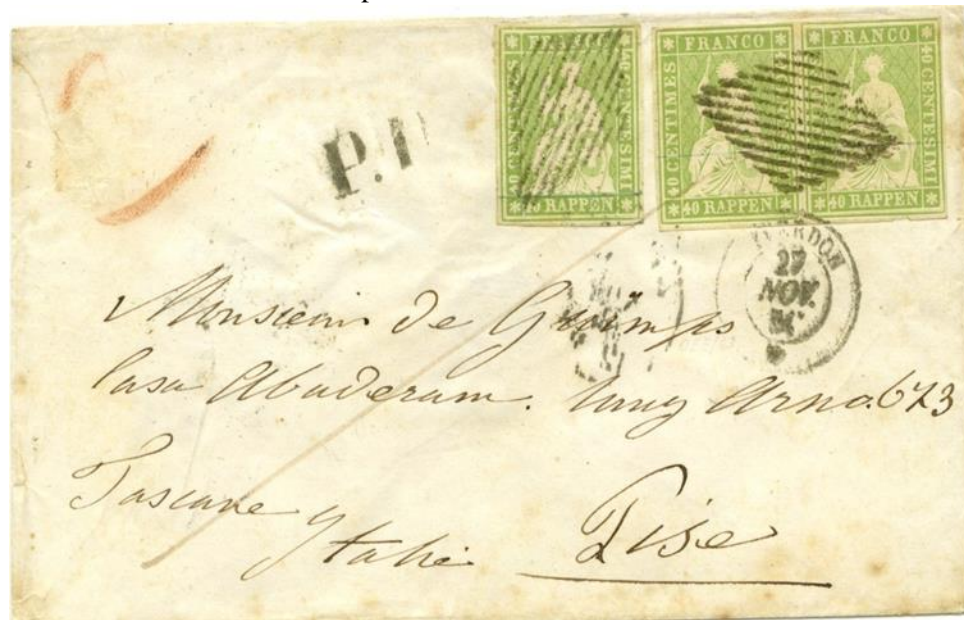 FRANCO
40 CENTIMES
40 CENTESIMI
40 RAPPEN
FRANCO
40 CENTIMES
40 RAPPEN
FRANCO
40 CENTESIMI
40 RAPPEN
P.D
27
NOV.
Monsieur de
Casa Arno. 673
Toscane
Italie Pise